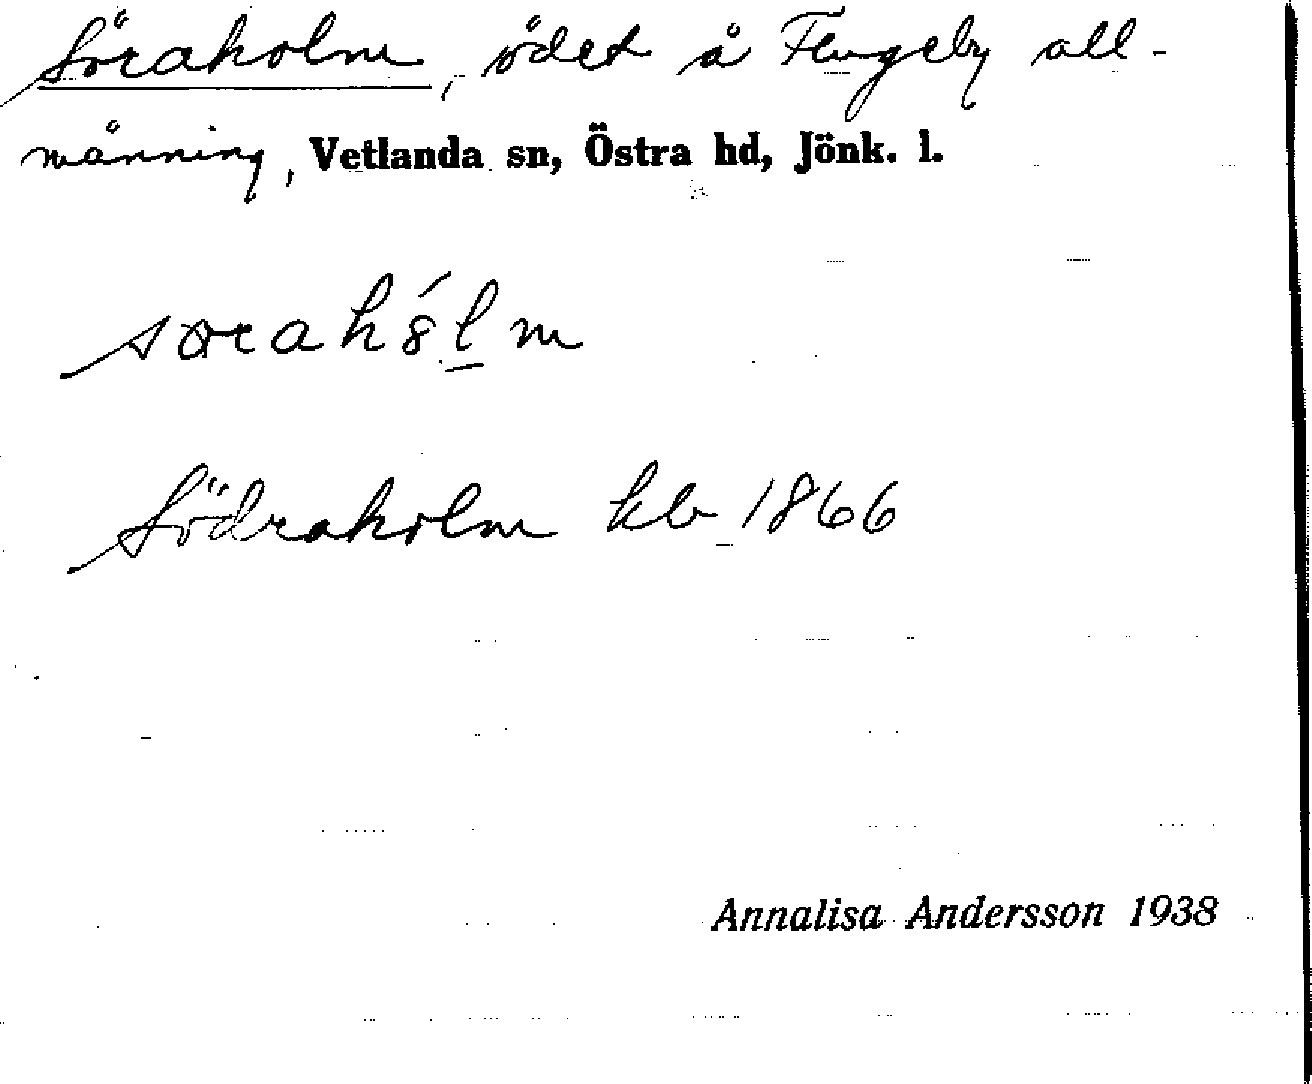 Söraholm, ödet å Flugeby all-
männing, Vetlanda sn, Östra hd, Jönk. l.
sœrahólm
Södraholm kb 1866
Annalisa Andersson 1938